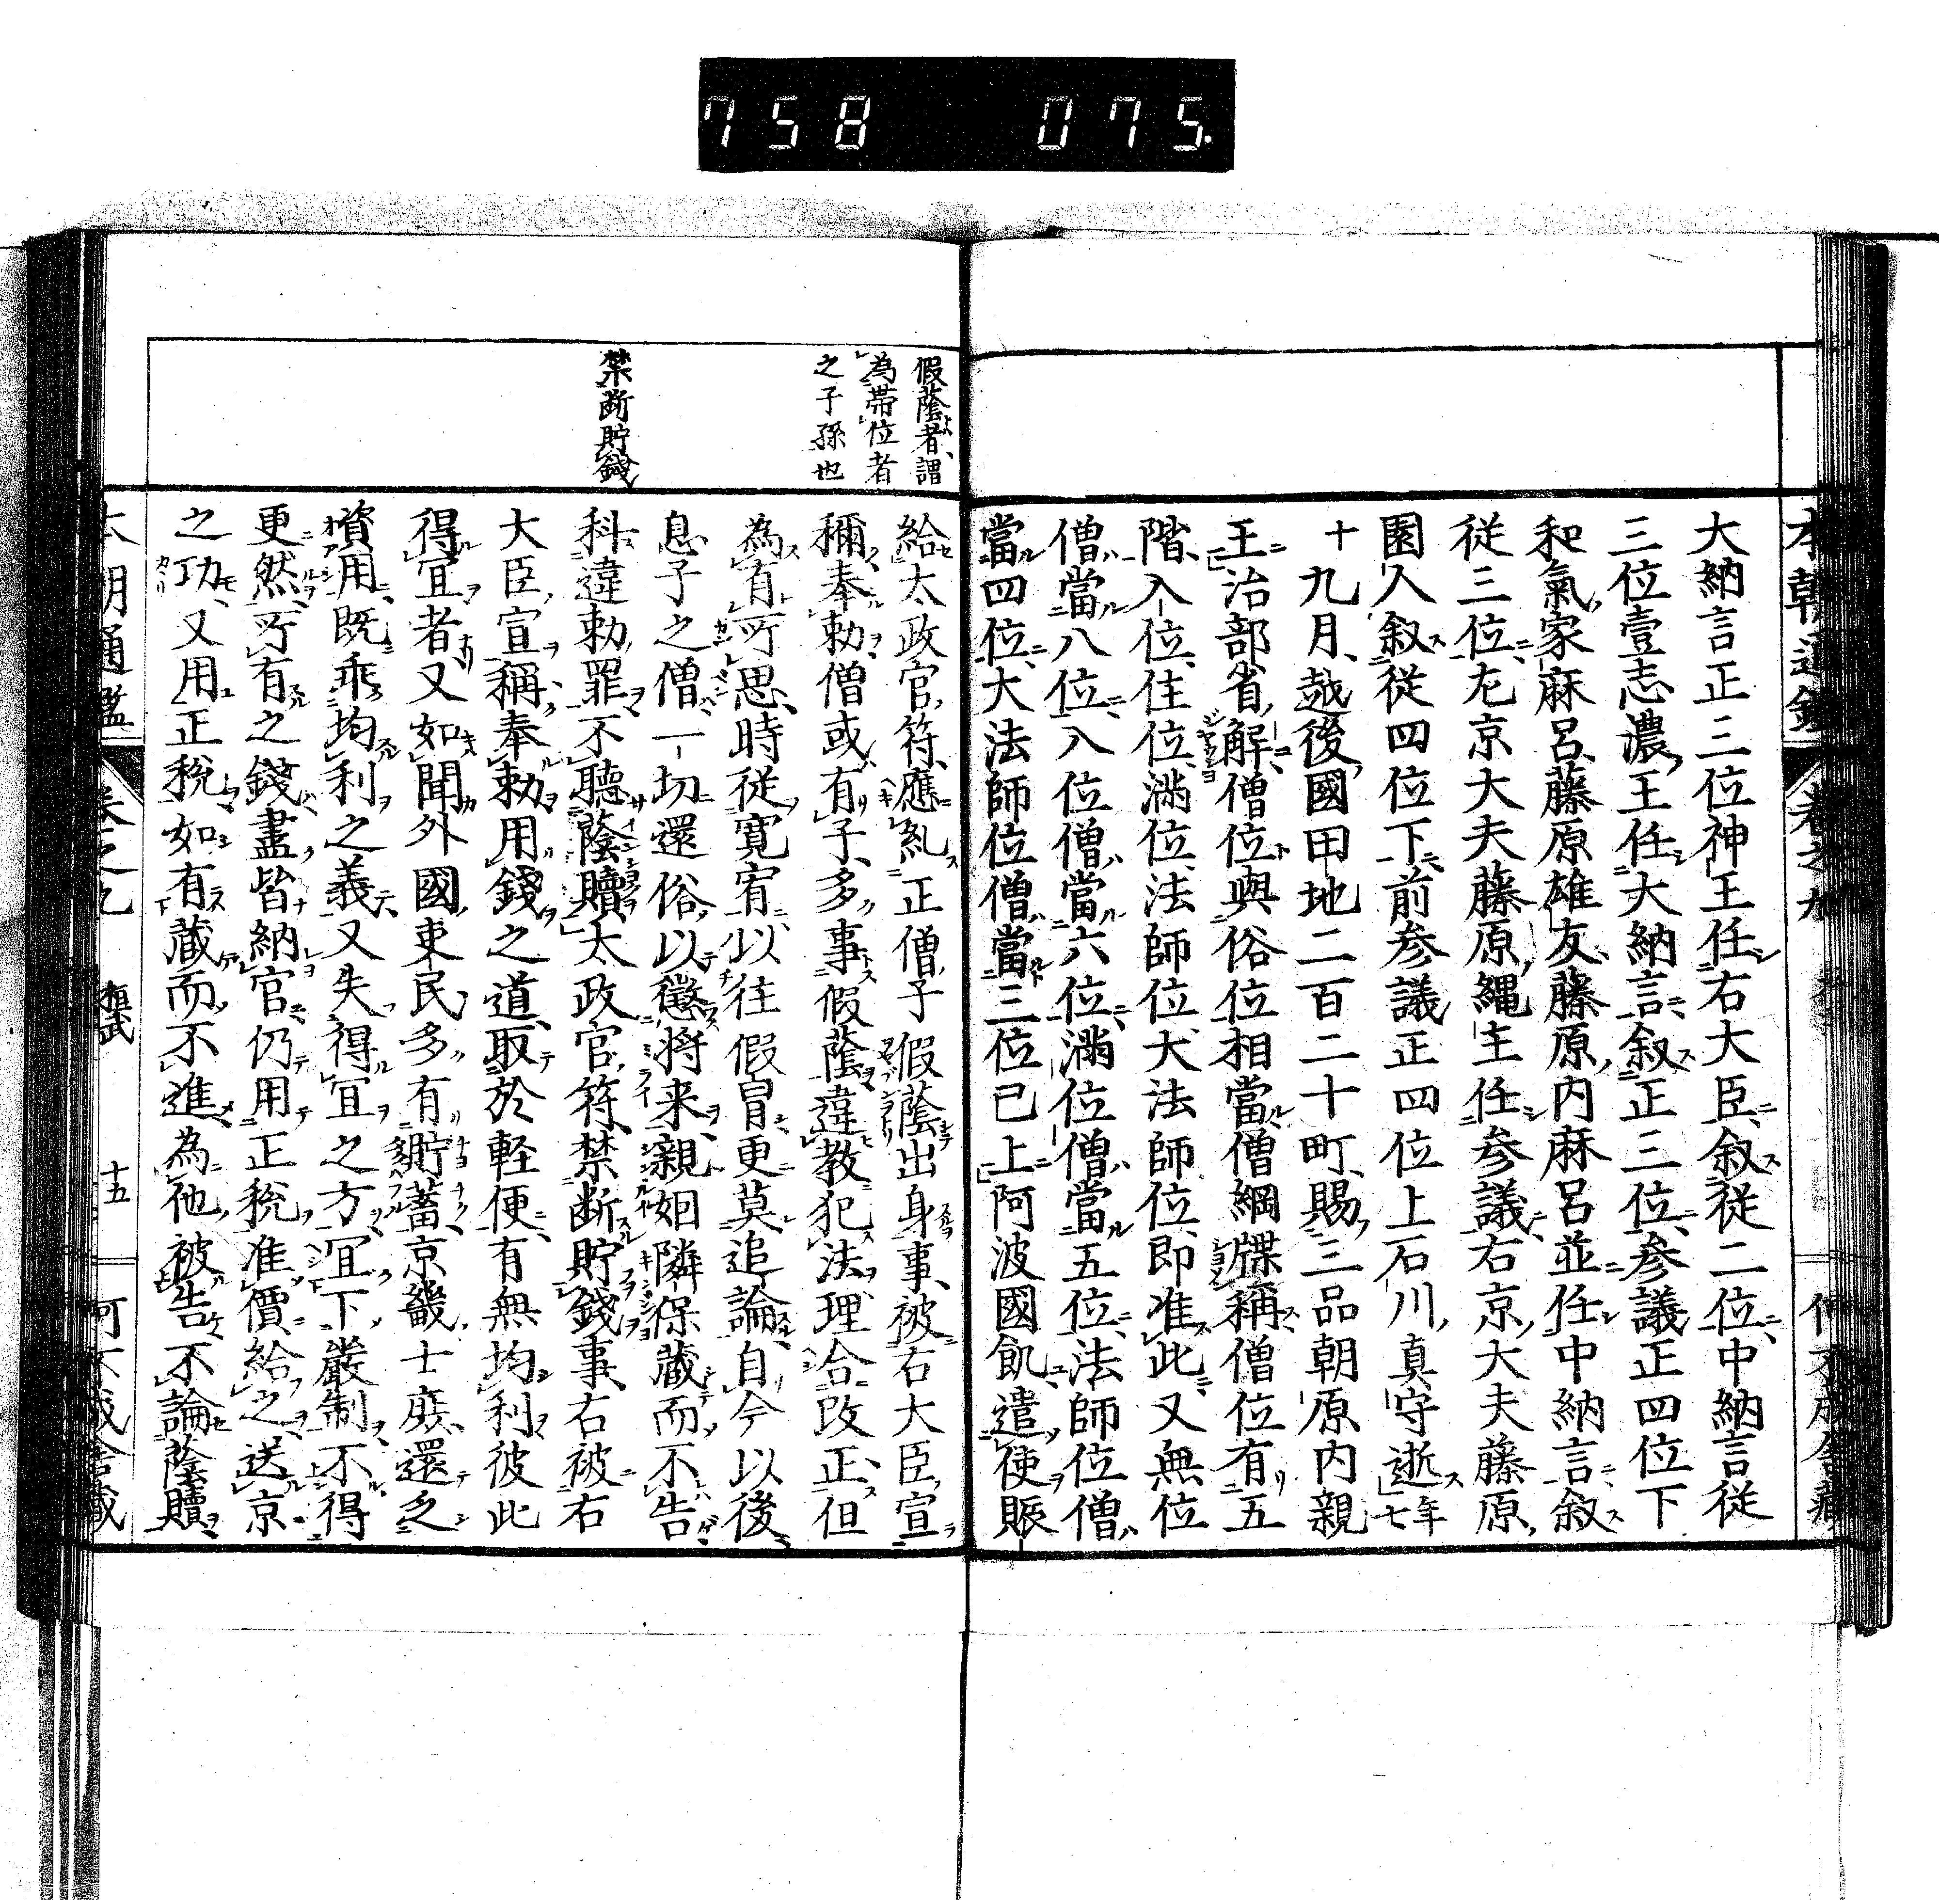 758 075.
大納言正三位神王任右大臣叙従二位中納言従
三位壹志濃王任大納言叙正三位参議正四位下
和氣家麻呂藤原雄友藤原内麻呂並任中納言叙
従三位左京大夫藤原縄主任参議右京大夫藤原
園人叙従四位下前参議正四位上石川真守逝年七
十九月越後國田地二百二十町賜三品朝原内親
王治部省解僧位與俗位相當僧綱牒稱僧位有五
階入位住位満位法師位大法師位即准此又無位
僧當八位入位僧當六位満位僧當五位法師位僧
當四位大法師位僧當三位已上阿波國飢遣使賑
假蔭者謂
為帯位者
之子孫也
給太政官符應糺正僧子假蔭出身事被右大臣宣
稱奉勅僧或有子多事假蔭違教犯法理合改正但
為有所思時従寛宥以往假冒更莫追論自今以後
息子之僧一切還俗以懲将来親姻隣保蔵而不告
禁断貯錢
科違勅罪不聴蔭贖太政官符禁断貯錢事右被右
大臣宣稱奉勅用錢之道取於軽便有無均利彼此
得宜者又如聞外國吏民多有貯蓄京畿士庶還乏
資用既乖均利之義又失得宜之方宜下嚴制不得
更然所有之錢盡皆納官仍用正税准價給之送京
之功又用正税如有蔵而不進為他被告不論蔭贖
本朝通鑑 桓武 十五